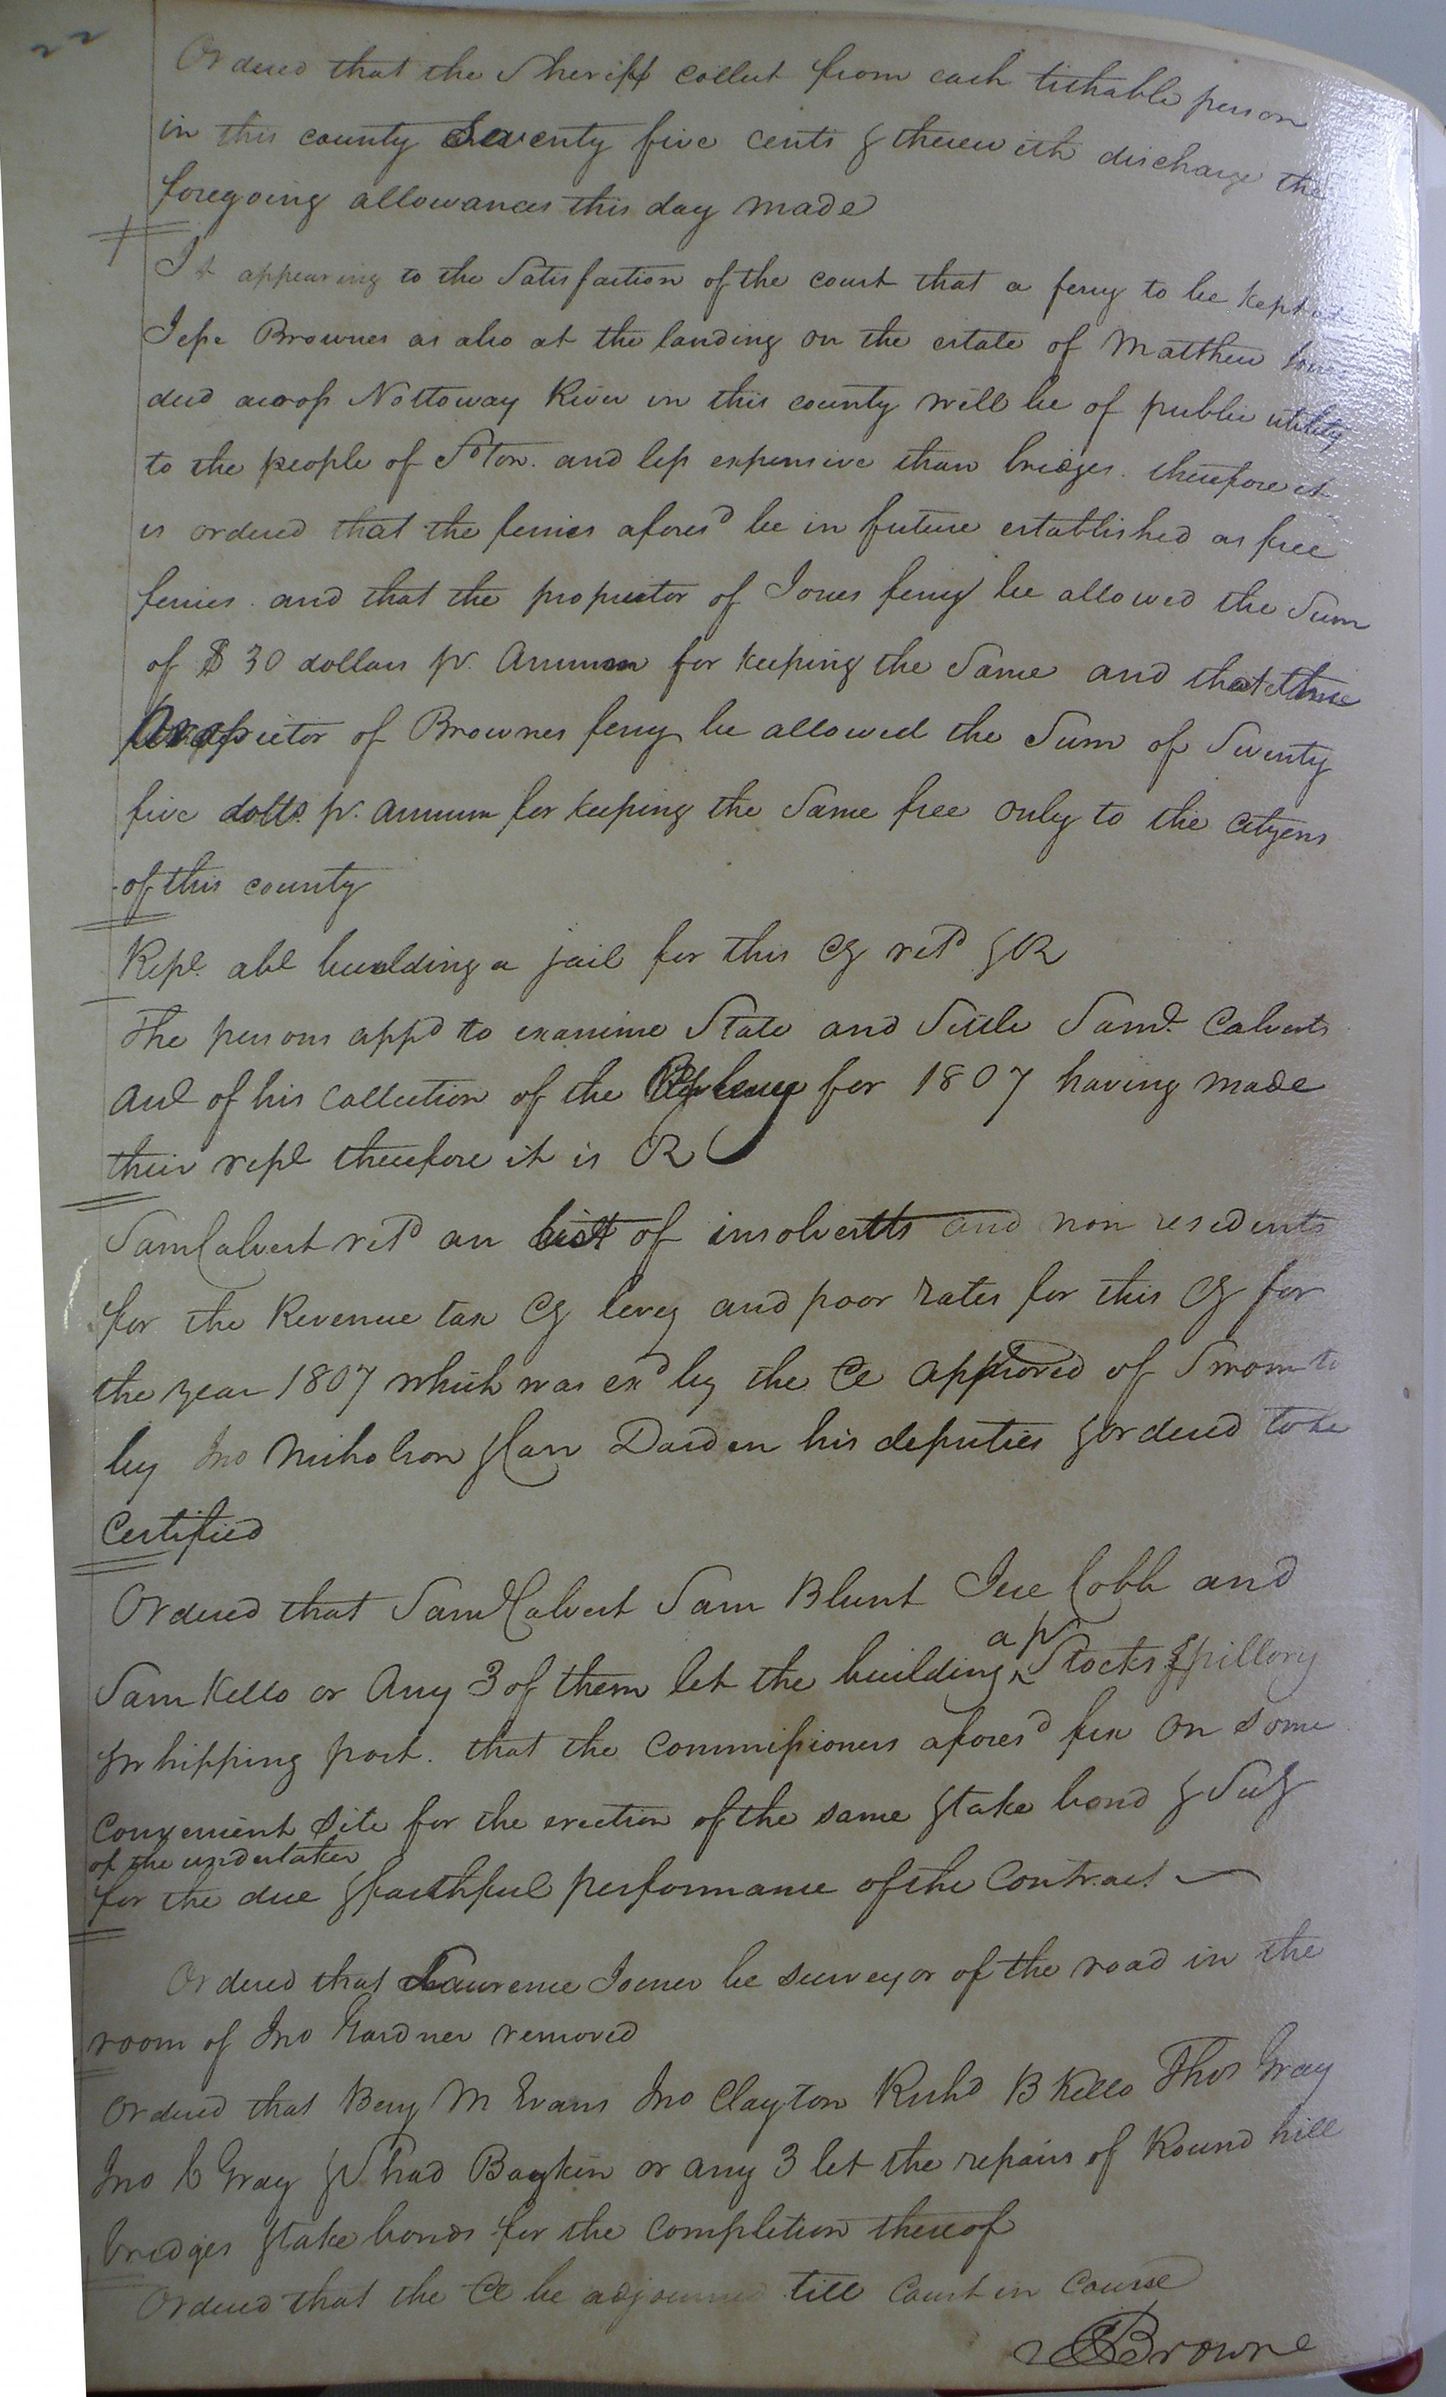 22
Ordered that the Sheriff collect from each tithable person
in this county Seventy five cents & therewith discharge the
foregoing allowances this day made
It appearing to the Satisfaction of the court that a ferry to be kept at
Jesse Brownes as also at the landing on the estate of Matthew Jones
decd across Nottoway River in this county will be of public utility
to the people of Soton. and less expensive than bridges. therefore it
is ordered that the ferries aforesd be in future established as free
ferries. and that the proprietor of Jones ferry be allowed the Sum
of $ 30 dollars pr. Annum for keeping the Same and that the
proprietor of Brownes ferry be allowed the Sum of Seventy
five dolls. pr. annum for keeping the Same free only to the Citizens
of this county
Rept. abt building a jail for this Cy retd & OR
The persons appd to examine State and Settle Saml. Calverts
Acct of his Collection of the levy for 1807 having made
their rept therefore it is OR
Sam Calvert retd an list of insolvents and non residents
for the Revenue tax Cy levy and poor rates for this Cy for
the year 1807 which was exd by the Ct approved of Sworn to
by Jno Nicholson & Darden his deputies & ordered to be
Certified
Ordered that Saml Calvert Sam Blunt Jere Cobb and
Sam Kello or Any 3 of them let the building a pr Stocks & pillory
& whipping post. that the commissioners aforesd fix on some
convenient Site for the erection of the same & take bond & Scy
of the undertaker
for the due & faithful performance of the Contract
Ordered that Lawrence Joiner be surveyor of the road in the
room of Jno Gardner removed
Ordered that Benj M Evans Jno Clayton Richd B Kello Thos Gray
Jno C Gray & Shad Baykin or any 3 let the repairs of Round hill
bridges & take bonds for the completion thereof
Ordered that the Ct be adjourned till Court in Course
Browne